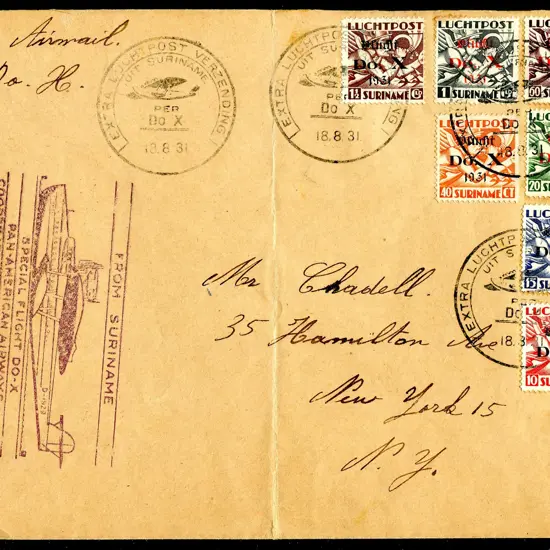 Airmail.
EXTRA LUCHTPOST VERZENDING
UIT SURINAME
PER
Do X
18.8.31
EXTRA LUCHTPOST
UIT SURINAME
PER
Do X
18.8.31
LUCHTPOST
Vlucht
Do. X
1931
1½ SURINAME Gld
LUCHTPOST
Vlucht
Do. X
1931
1 SURINAME Gld
LUCHT
60 SURI
LUCHTPOST
Vlucht
Do. X
1931
40 SURINAME CT
20 SUR
LUCH
15 SU
LUC
10 SU
EXTRA LUCHTPOST
UIT SU
PER
Do
18.8
FROM SURINAME
D-1929
SPECIAL FLIGHT DO-X
PAN AMERICAN AIRWAYS
Mr Chadell.
35 Hamilton Ave
New York 15
N.Y.